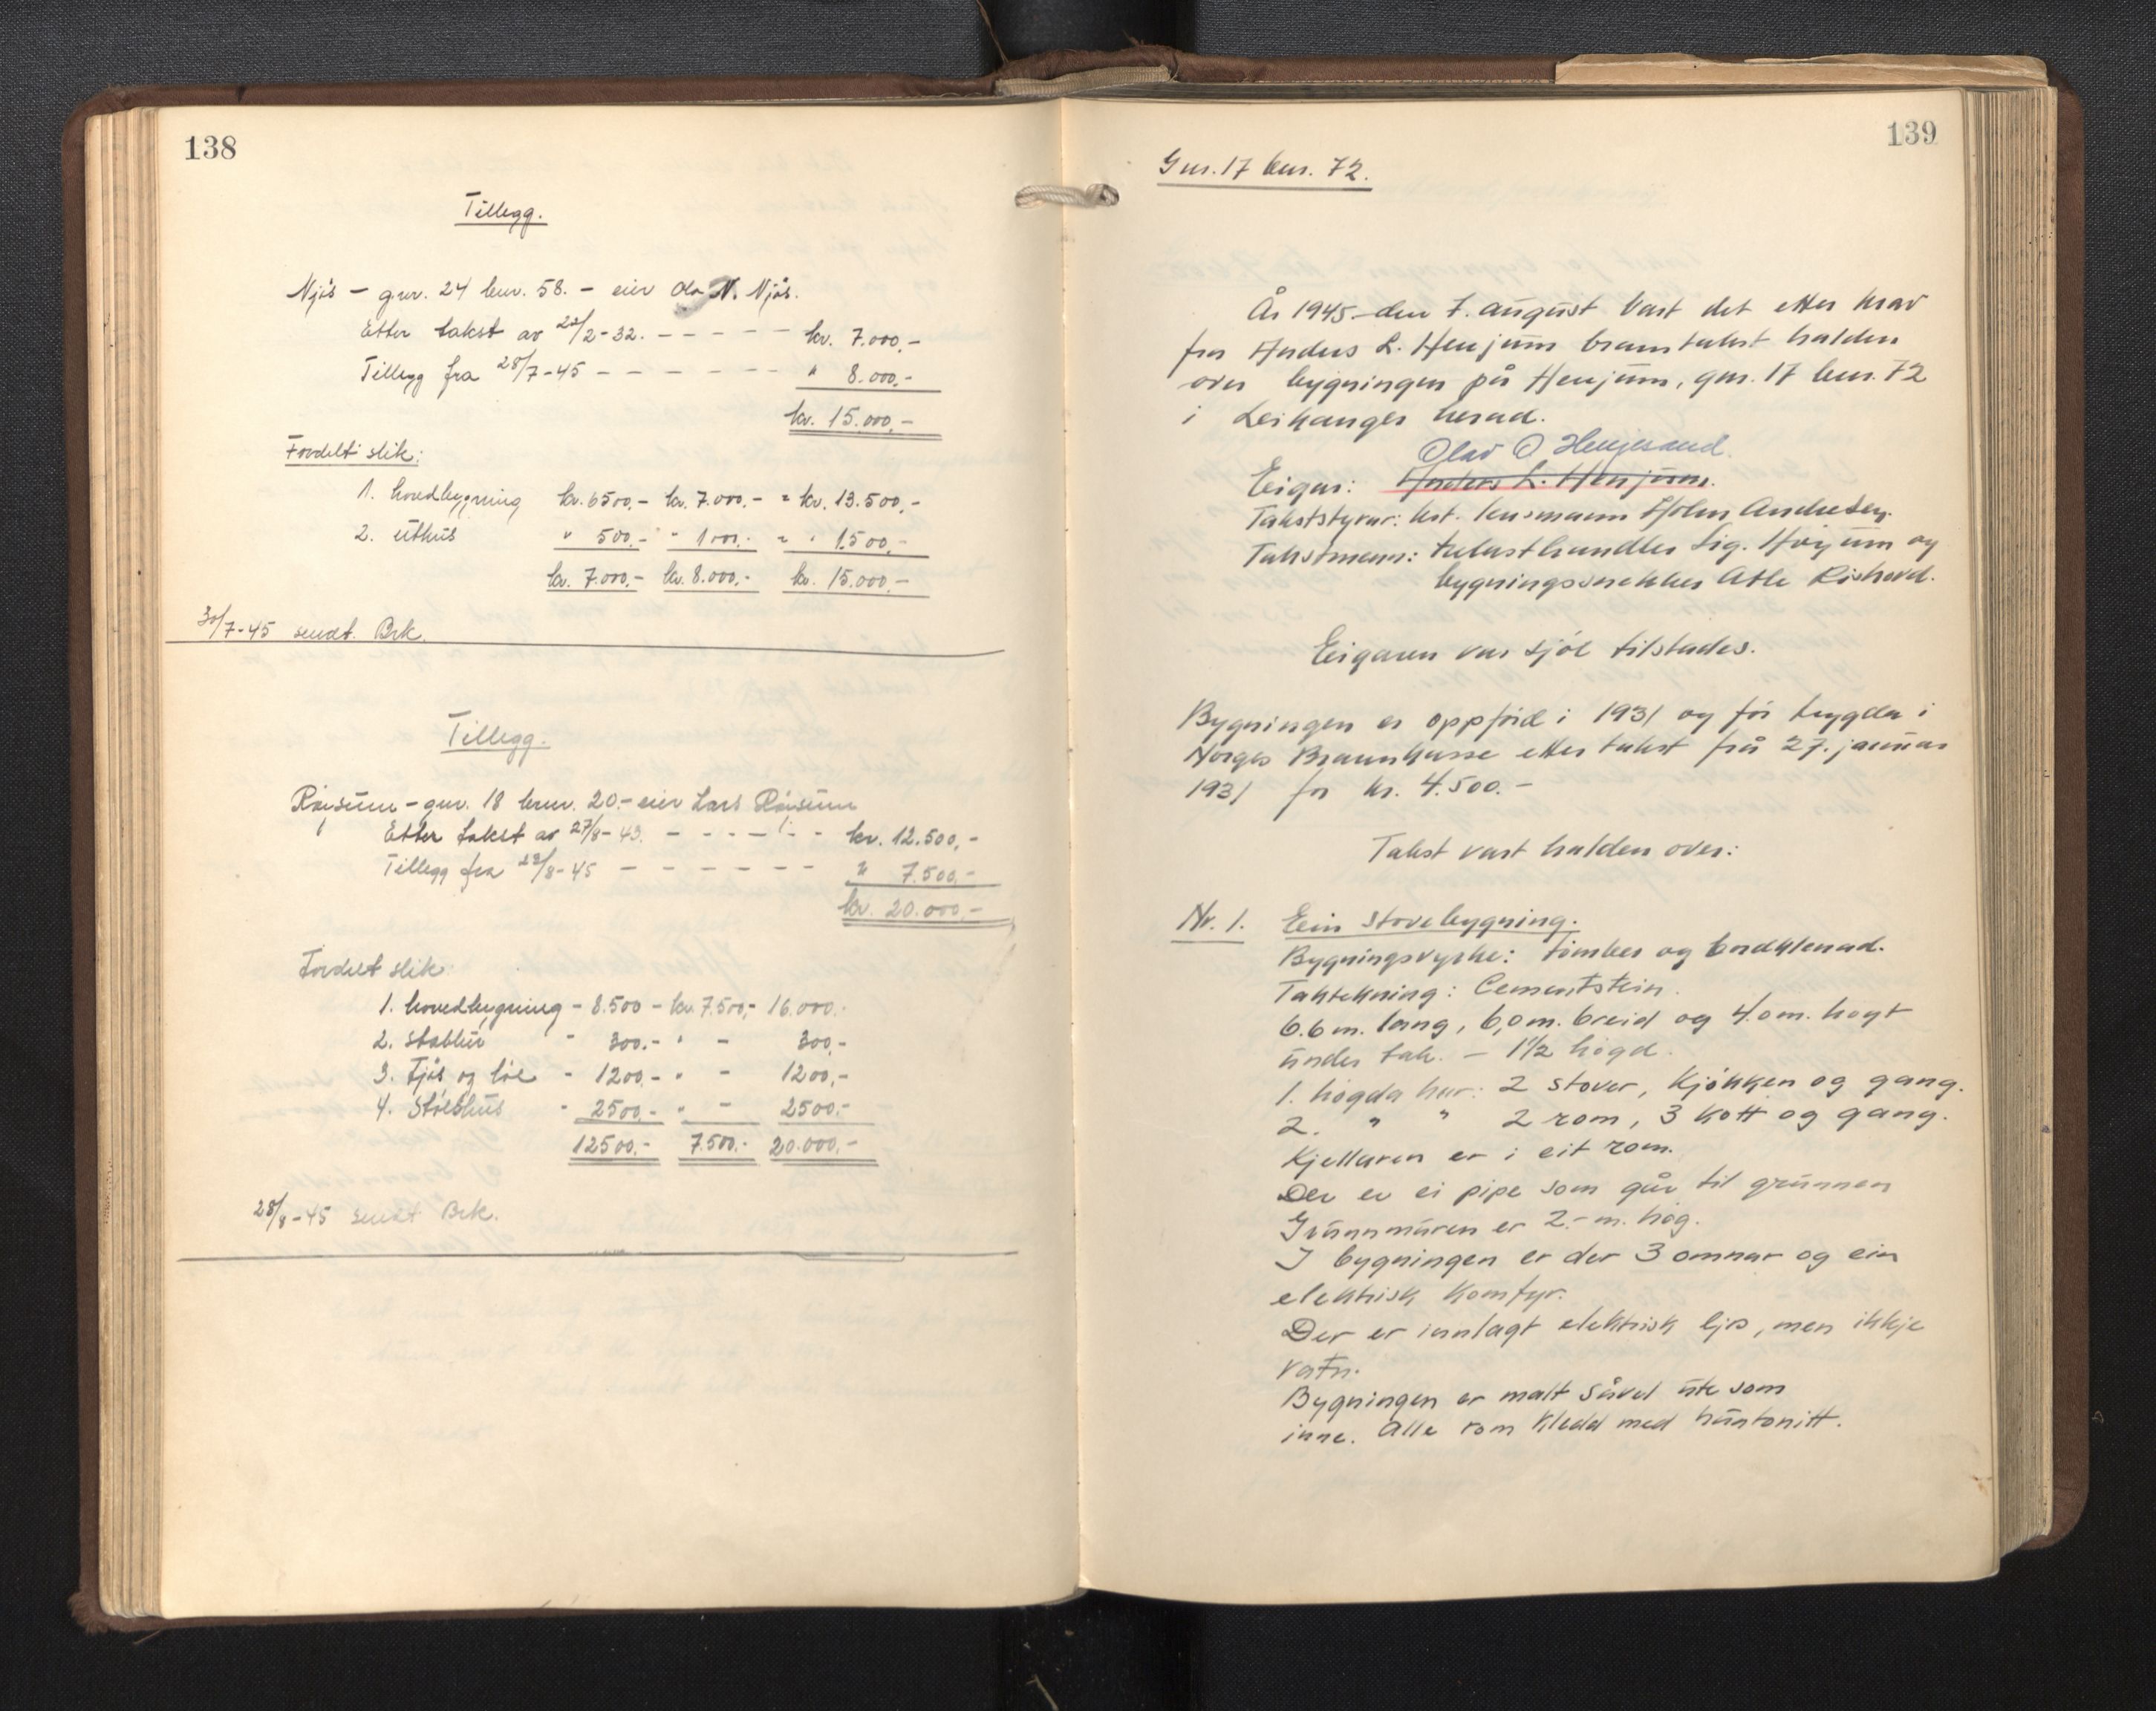 138
Tillegg.
Njøs – gnr. 24 bnr. 58. – eier Ola N. Njøs.
Etter takst av 22/2-32. – – – – – kr. 7.000,-
Tillegg fra 28/7-45 – – – – – – " 8.000,-
kr. 15.000,-
Fordelt slik:
1. hovedbygning kr. 6500,- kr. 7.000,- = kr. 13.500,-
2. uthus " 500,- " 1000,- = " 1.500,-
kr. 7.000,- kr. 8.000,- kr. 15.000,-
30/7-45 sendt. Brk.
Tillegg.
Røysum – gnr. 18 bnr. 20.- eier Lars Røysum
Etter takst av 27/8-43. – – – – – – kr. 12.500,-
Tillegg fra 28/8-45 – – – – – – " 7.500,-
kr. 20.000,-
Fordelt slik:
1. hovedbygning - 8.500 - kr. 7.500,- 16.000.-
2. stabbur - 300.- " - 300,-
3. Fjøs og løe - 1200.- " - 1200,-
4. Stølshus - 2500.- " - 2500.-
12500.- 7.500.- 20.000,-
28/8-45 sendt Brk.
139
Gnr. 17 bnr. 72.
År 1945 – den 7. august vart det etter krav
fra Anders L. Henjum branntakst halden
over bygningen på Henjum, gnr. 17 bnr. 72
i Leikanger herad.
Olav O Henjesand.
Eigar: Anders L. Henjum.
Takststyrar: kst. lensmann Holm Andresen.
Takstmenn: trelasthandler Sig. Høyum og
bygningssnekker Atle Rishovd.
Eigaren var sjøl tilstades.
Bygningen er oppførd i 1931 og før trygda i
Norges Brannkasse etter takst frå 27. januar
1931 for kr. 4.500.-
Takst vart halden over:
Nr. 1. Ein stovebygning.
Bygningsvyrke: timber og bordklenad.
Taktekning: Cementstein.
6.6 m. lang, 6,0 m. breid og 4.0 m. høgt
under tak. – 1½ høgd.
1. høgda har: 2 stover, kjøkken og gang.
2. " " 2 rom, 3 kott og gang.
Kjellaren er i eit rom.
Der er ei pipe som går til grunnen
Grunnmuren er 2.- m. høg.
I bygningen er der 3 omnar og ein
elektrisk komfyr.
Der er innlagt elektrisk ljos, men ikkje
vatn.
Bygningen er malt såvel ute som
inne. Alle rom kledd med huntonitt.